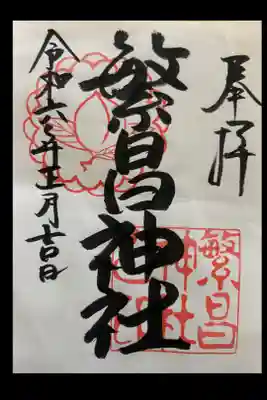 奉拝
繁昌神社
令和六年五月吉日
繁昌
神社